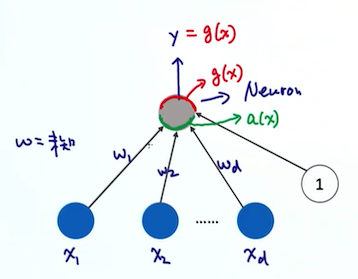 y = g(x)
g(x)
Neuron
a(x)
w = 未知
w1
w2
wd
1
......
x1
x2
xd